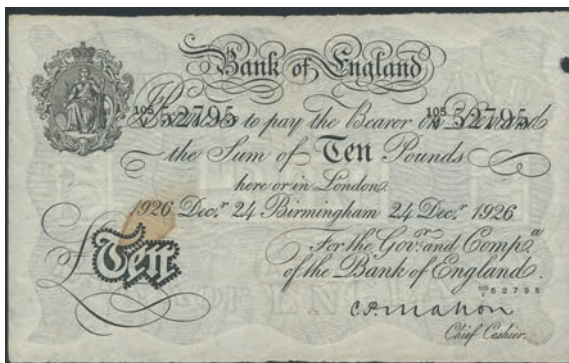 Bank of England
105/V 52795 105/V 52795
Promise to pay the Bearer on Demand
the Sum of Ten Pounds
here or in London.
1926 Decr. 24 Birmingham 24 Decr. 1926
For the Govr. and Compa.
of the Bank of England.
£Ten
105/V 52795
C.P. Mahon
Chief Cashier.